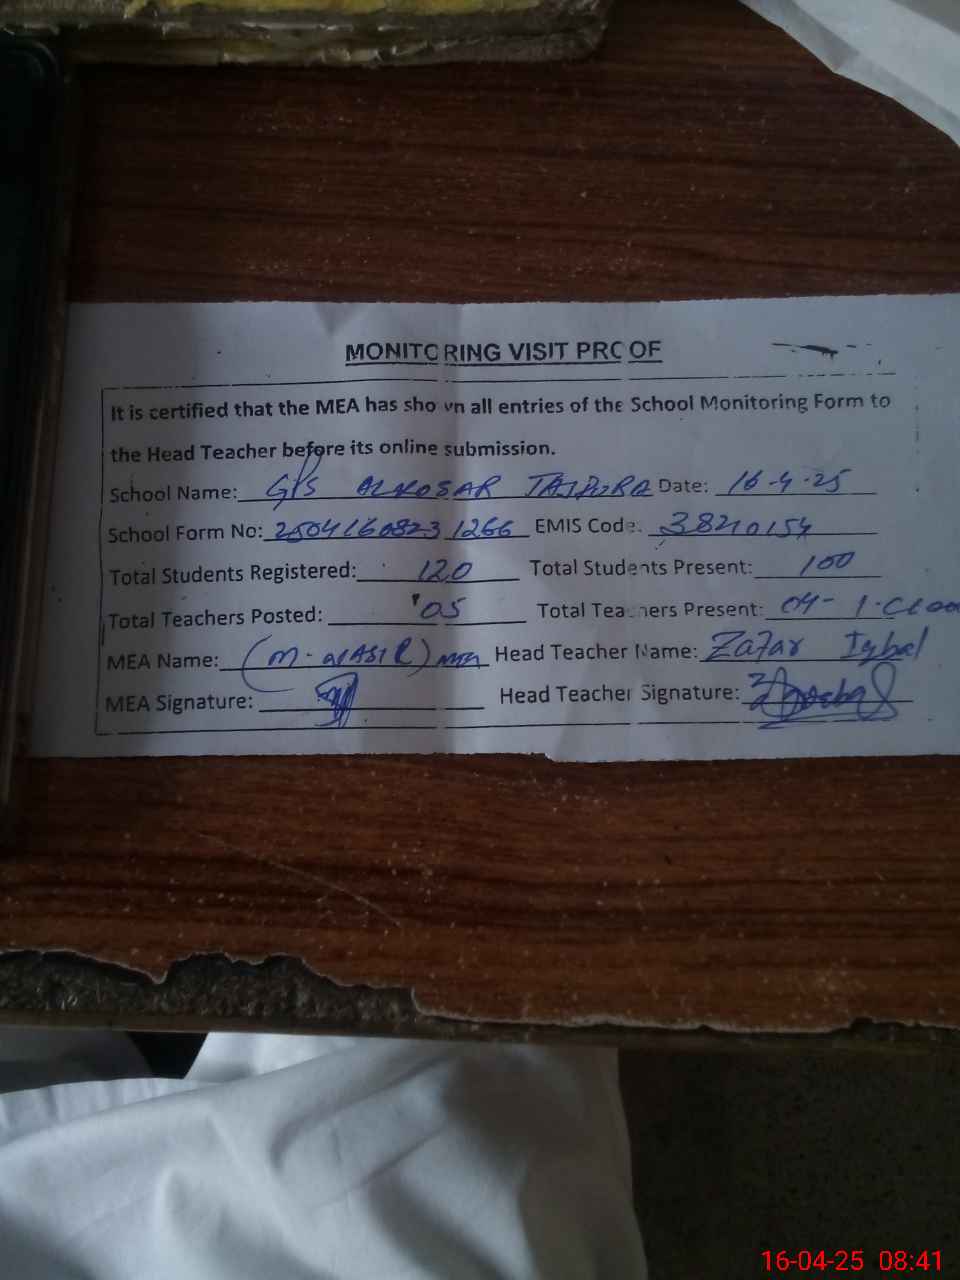 MONITORING VISIT PROOF
It is certified that the MEA has shown all entries of the School Monitoring Form to
the Head Teacher before its online submission.
School Name: G/S ALKOSAR Date: 16-4-25
School Form No: 25041608231266 EMIS Code: 38210154
Total Students Registered: 120 Total Students Present: 100
Total Teachers Posted: 05 Total Teachers Present: 04- 1-
MEA Name: (M-NASIR) MEA Head Teacher Name: Zafar Iqbal
MEA Signature: Head Teacher Signature:
16-04-25 08:41